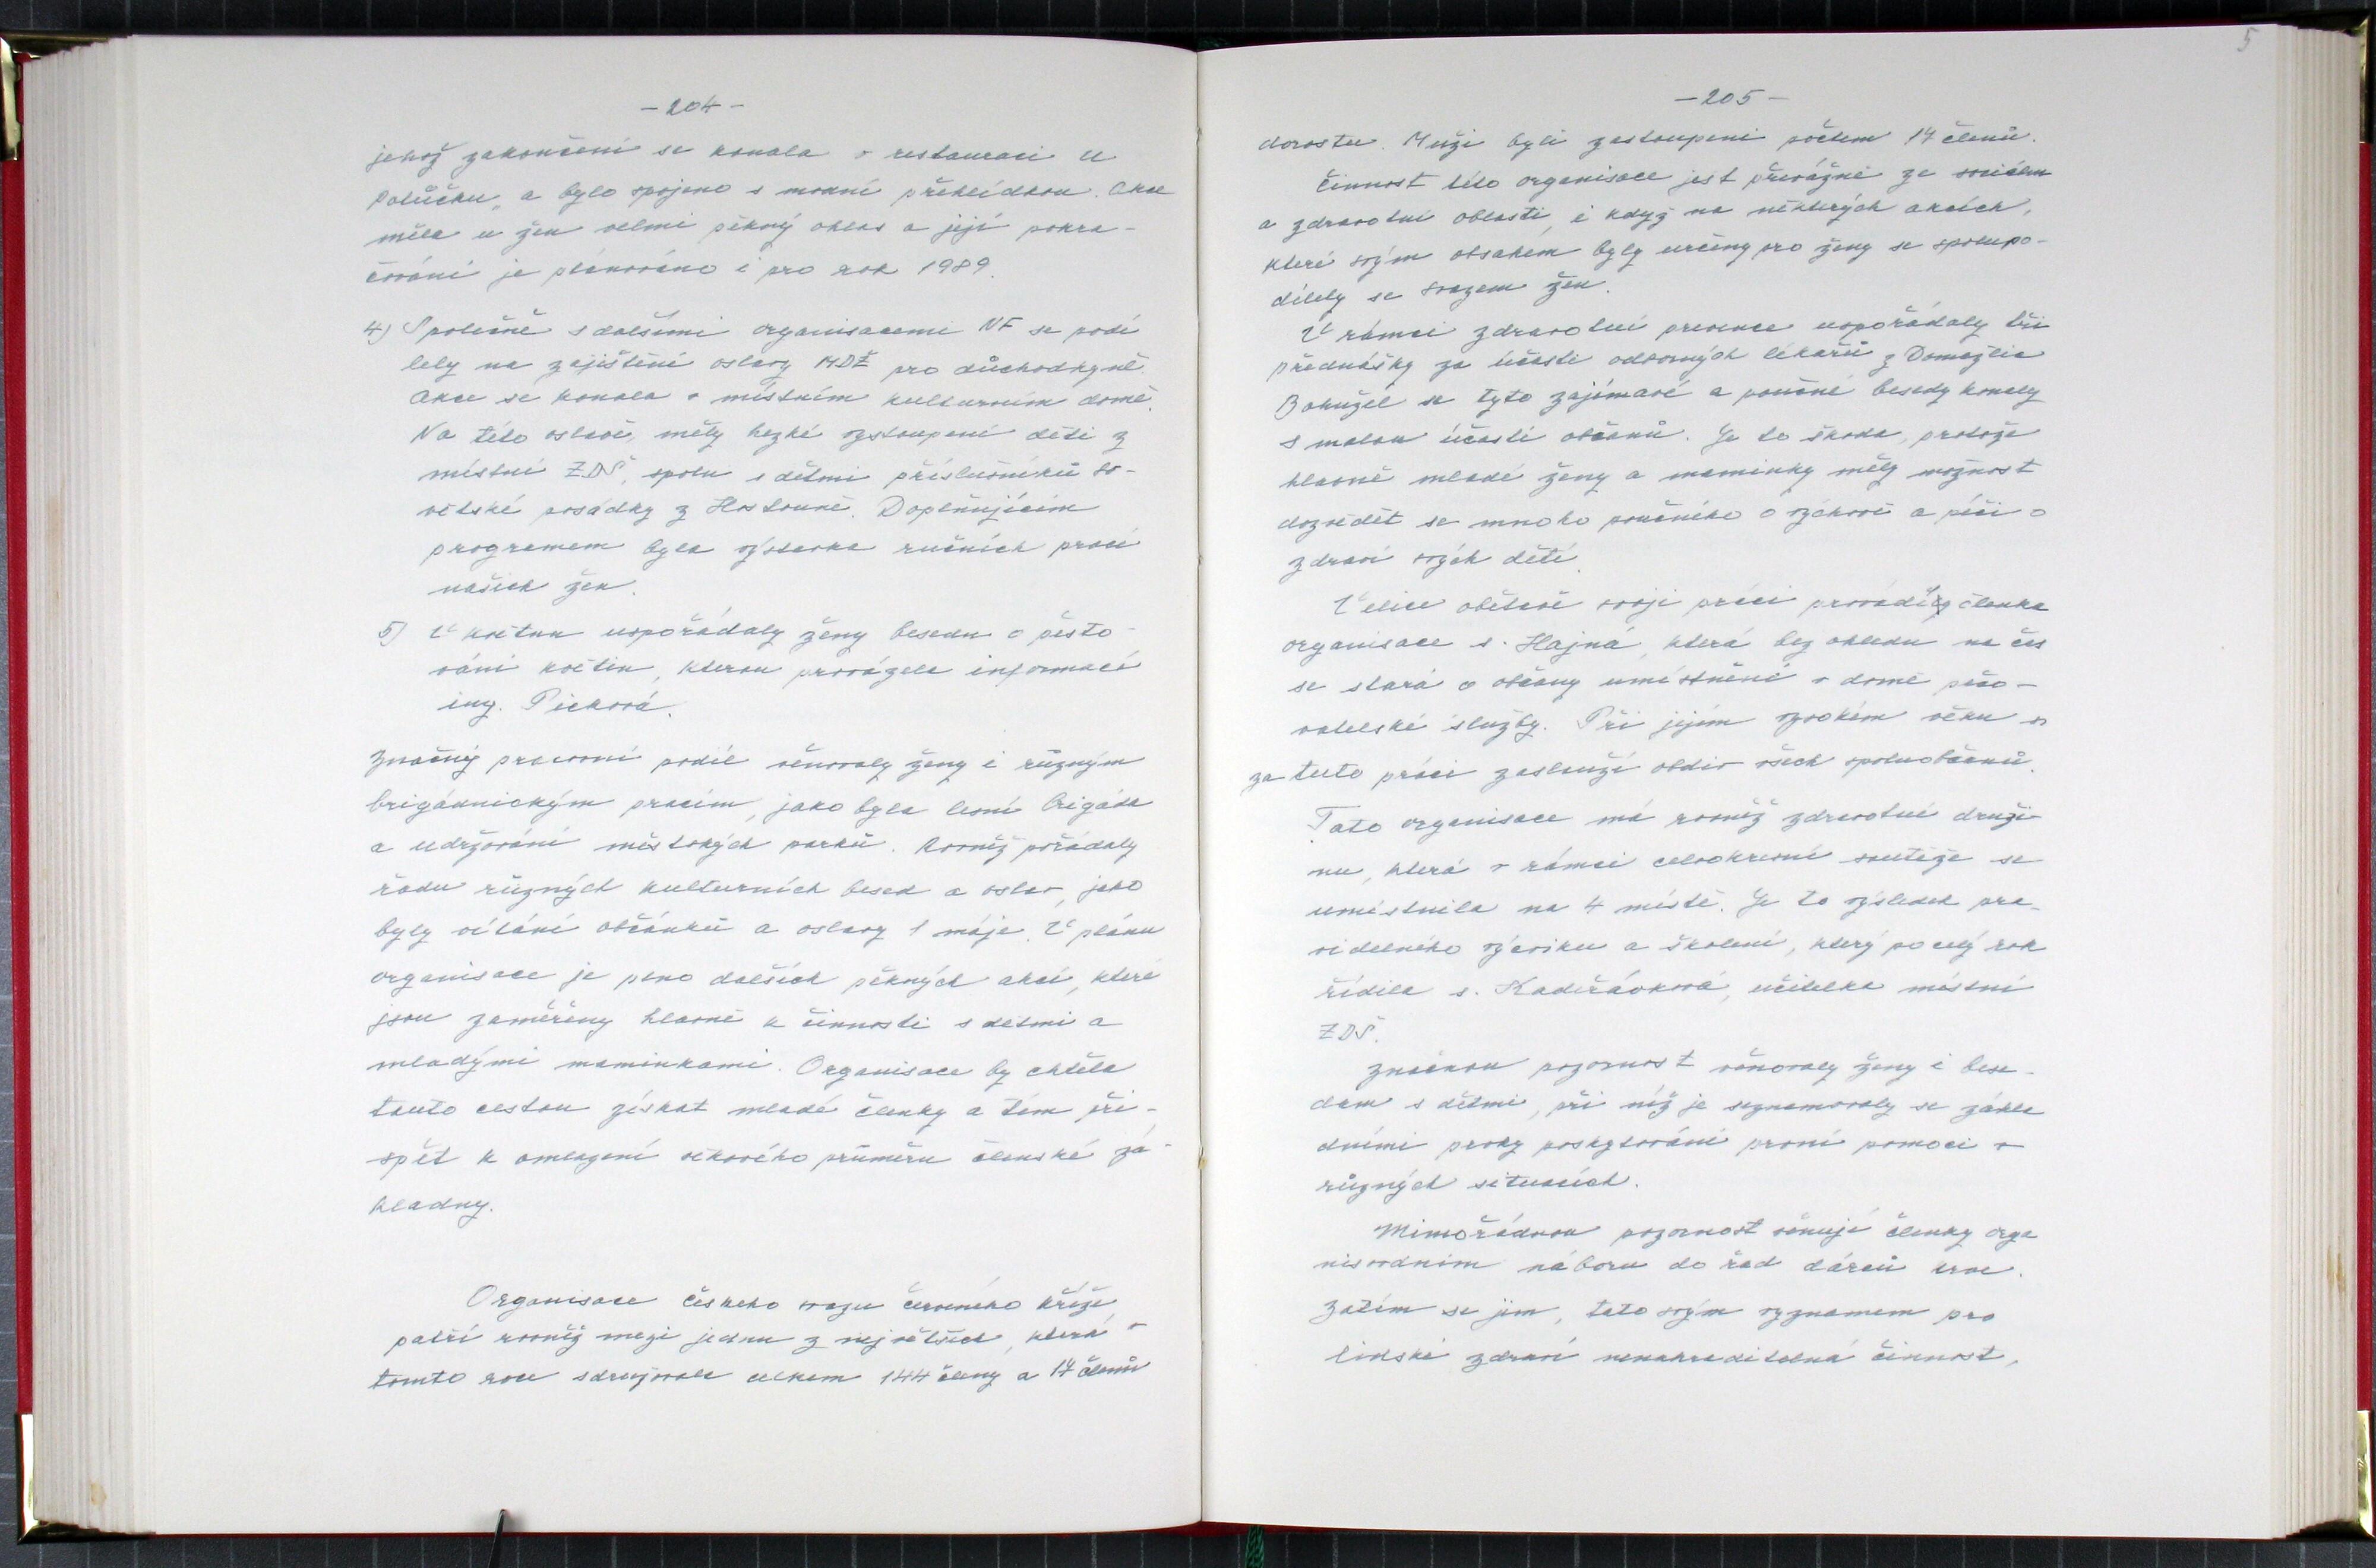 - 204 -
jehož zakončení se konala v restauraci u
Polůčku" a bylo spojeno s modní přehlídkou. Akce
měla u žen velmi pěkný ohlas a její pokra-
čování je plánováno i pro rok 1989.
4) Společně s dalšími organisacemi NF se podí
lely na zajištění oslavy MDŽ pro důchodkyně.
Akce se konala v místním kulturním domě.
Na této oslavě, měly hezké vystoupení děti z
místní ZDŠ, spolu s dětmi příslušníků so-
větské posádky z Hostouně. Doplňujícím
programem byla výstavka ručních prací
našich žen.
5) V květnu uspořádaly ženy besedu o pěsto-
vání květin, kterou provázela informací
ing. Picková.
Značný pracovní podíl věnovaly ženy i různým
brigádnickým pracím, jako byla lesní brigáda
a udržování městských parků. Rovněž pořádaly
řadu různých kulturních besed a oslav, jako
byly vítání občánků a oslavy 1 máje. V plánu
organisace je plno dalších pěkných akcí, které
jsou zaměřeny hlavně k činnosti s dětmi a
mladými maminkami. Organisace by chtěla
touto cestou získat mladé členky a tím při-
spět k omlazení věkového průměru členské zá-
kladny.
Organisace českeho svazu červeného kříže
patří rovněž mezi jednu z největších, která v
tomto roce sdružovala celkem 144 členy a 14 členů
- 205 -
dorostu. Muži byli zastoupeni počtem 14 členů.
Činnost této organisace jest převážně ze sociálem
a zdravotní oblasti, i když na některých akcích,
které svým obsahem byly určeny pro ženy se spolupo-
dílely se svazem žen.
V rámci zdravotní prevence uspořádaly tři
přednášky za účasti odborných lékařů z Domažlic
Bohužel se tyto zajímavé a poučné besedy konaly
s malou účastí občanů. Je to škoda, protože
hlavně mladé ženy a maminky měly možnost
dozvědět se mnoho poučného o výchově a péči o
zdraví svých dětí.
Velice obětavě svoji práci provádí členka
organisace s. Hajná, která bez ohledu na čas
se stará o občany umístněné v domě pečo-
vatelské služby. Při jejím vysokém věku si
za tuto práci zaslouží obdiv všech spoluobčanů.
Tato organisace má rovněž zdravotní druži-
nu, která v rámci celookresní soutěže se
umístnila na 4 místě. Je to výsledek pra-
videlného výcviku a školení, který po celý rok
řídila s. Kadeřávková, učitelka místní
ZDŠ.
Značnou pozornost věnovaly ženy i bese-
dám s dětmi, při níž je seznamovaly se zákla
dními prvky poskytování první pomoci v
různých situacích.
Mimořádnou pozornost věnují členky orga
nisování náboru do řad dárců krve.
Zatím se jim, tato svým významem pro
lidské zdraví nenahraditelná činnost,
5